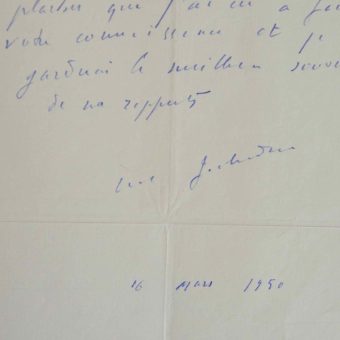 plaisir que j'ai eu à fai
votre connaissance et je
garderai le meilleur souve
de nos rapports
16 Mars 1990